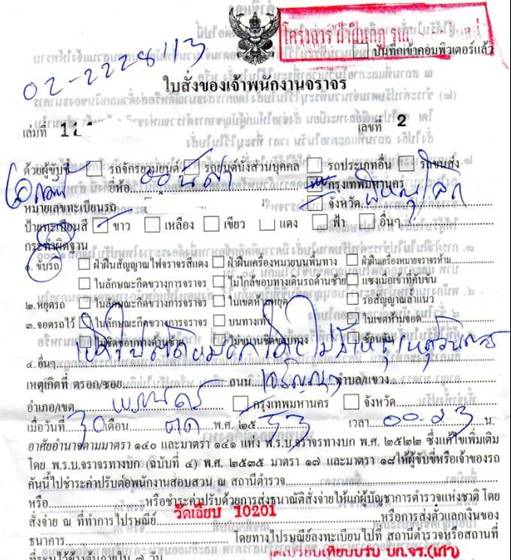 โครงการ
บันทึกเข้าคอมพิวเตอร์แล้ว
02-2228113
ใบสั่งของเจ้าพนักงานจราจร
เล่มที่ เลขที่ 2
ด้วยผู้ขับขี่ รถจักรยานยนต์ รถยนต์นั่งส่วนบุคคล รถประเภทอื่น รถขนส่ง
ยี่ห้อ ฮอนด้า กรุงเทพมหานคร
หมายเลขทะเบียนรถ จังหวัด พิษณุโลก
ป้ายทะเบียนสี ขาว เหลือง เขียว แดง ฟ้า อื่นๆ
กระทำผิดฐาน
๑. ขับรถ ฝ่าฝืนสัญญาณไฟจราจรสีแดง ฝ่าฝืนเครื่องหมายบนพื้นทาง ฝ่าฝืนเครื่องหมายจราจรห้าม
ในลักษณะกีดขวางการจราจร ไม่ใกล้ขอบทางเดินรถด้านซ้าย แซงเมื่อเข้าที่คับขัน
๒. หยุดรถ ในลักษณะกีดขวางการจราจร ในเขตห้ามหยุด รอสัญญาณล้ำแนว
๓. จอดรถไว้ ในลักษณะกีดขวางการจราจร บนทางเท้า ในเขตห้ามจอด
ไม่ชิดขอบทางด้านซ้าย ไม่ขนานชิดขอบทาง ซ้อนคัน
๔. อื่นๆ
เหตุเกิดที่ ตรอก/ซอย ถนน เจริญกรุง ตำบล/แขวง
อำเภอ/เขต กรุงเทพมหานคร จังหวัด
เมื่อวันที่ 30 เดือน ตค พ.ศ. ๒๕ 53 เวลา 00.23 น.
อาศัยอำนาจตามมาตรา ๑๔๐ และมาตรา ๑๔๑ แห่ง พ.ร.บ.จราจรทางบก พ.ศ. ๒๕๒๒ ซึ่งแก้ไขเพิ่มเติม
โดย พ.ร.บ.จราจรทางบก (ฉบับที่ ๔) พ.ศ. ๒๕๓๕ มาตรา ๑๗ และมาตรา ๑๘ ให้ผู้ขับขี่หรือเจ้าของรถ
คันนี้ไปชำระค่าปรับต่อพนักงานสอบสวน ณ สถานีตำรวจ
หรือ หรือชำระค่าปรับด้วยการส่งธนาณัติสั่งจ่าย ให้แก่ผู้บัญชาการตำรวจแห่งชาติ โดย
สั่งจ่าย ณ ที่ทำการไปรษณีย์ วัดเลียบ 10201 หรือการส่งตั๋วแลกเงินของ
ธนาคาร โดยทางไปรษณีย์ลงทะเบียนไปที่ สถานีตำรวจหรือสถานที่